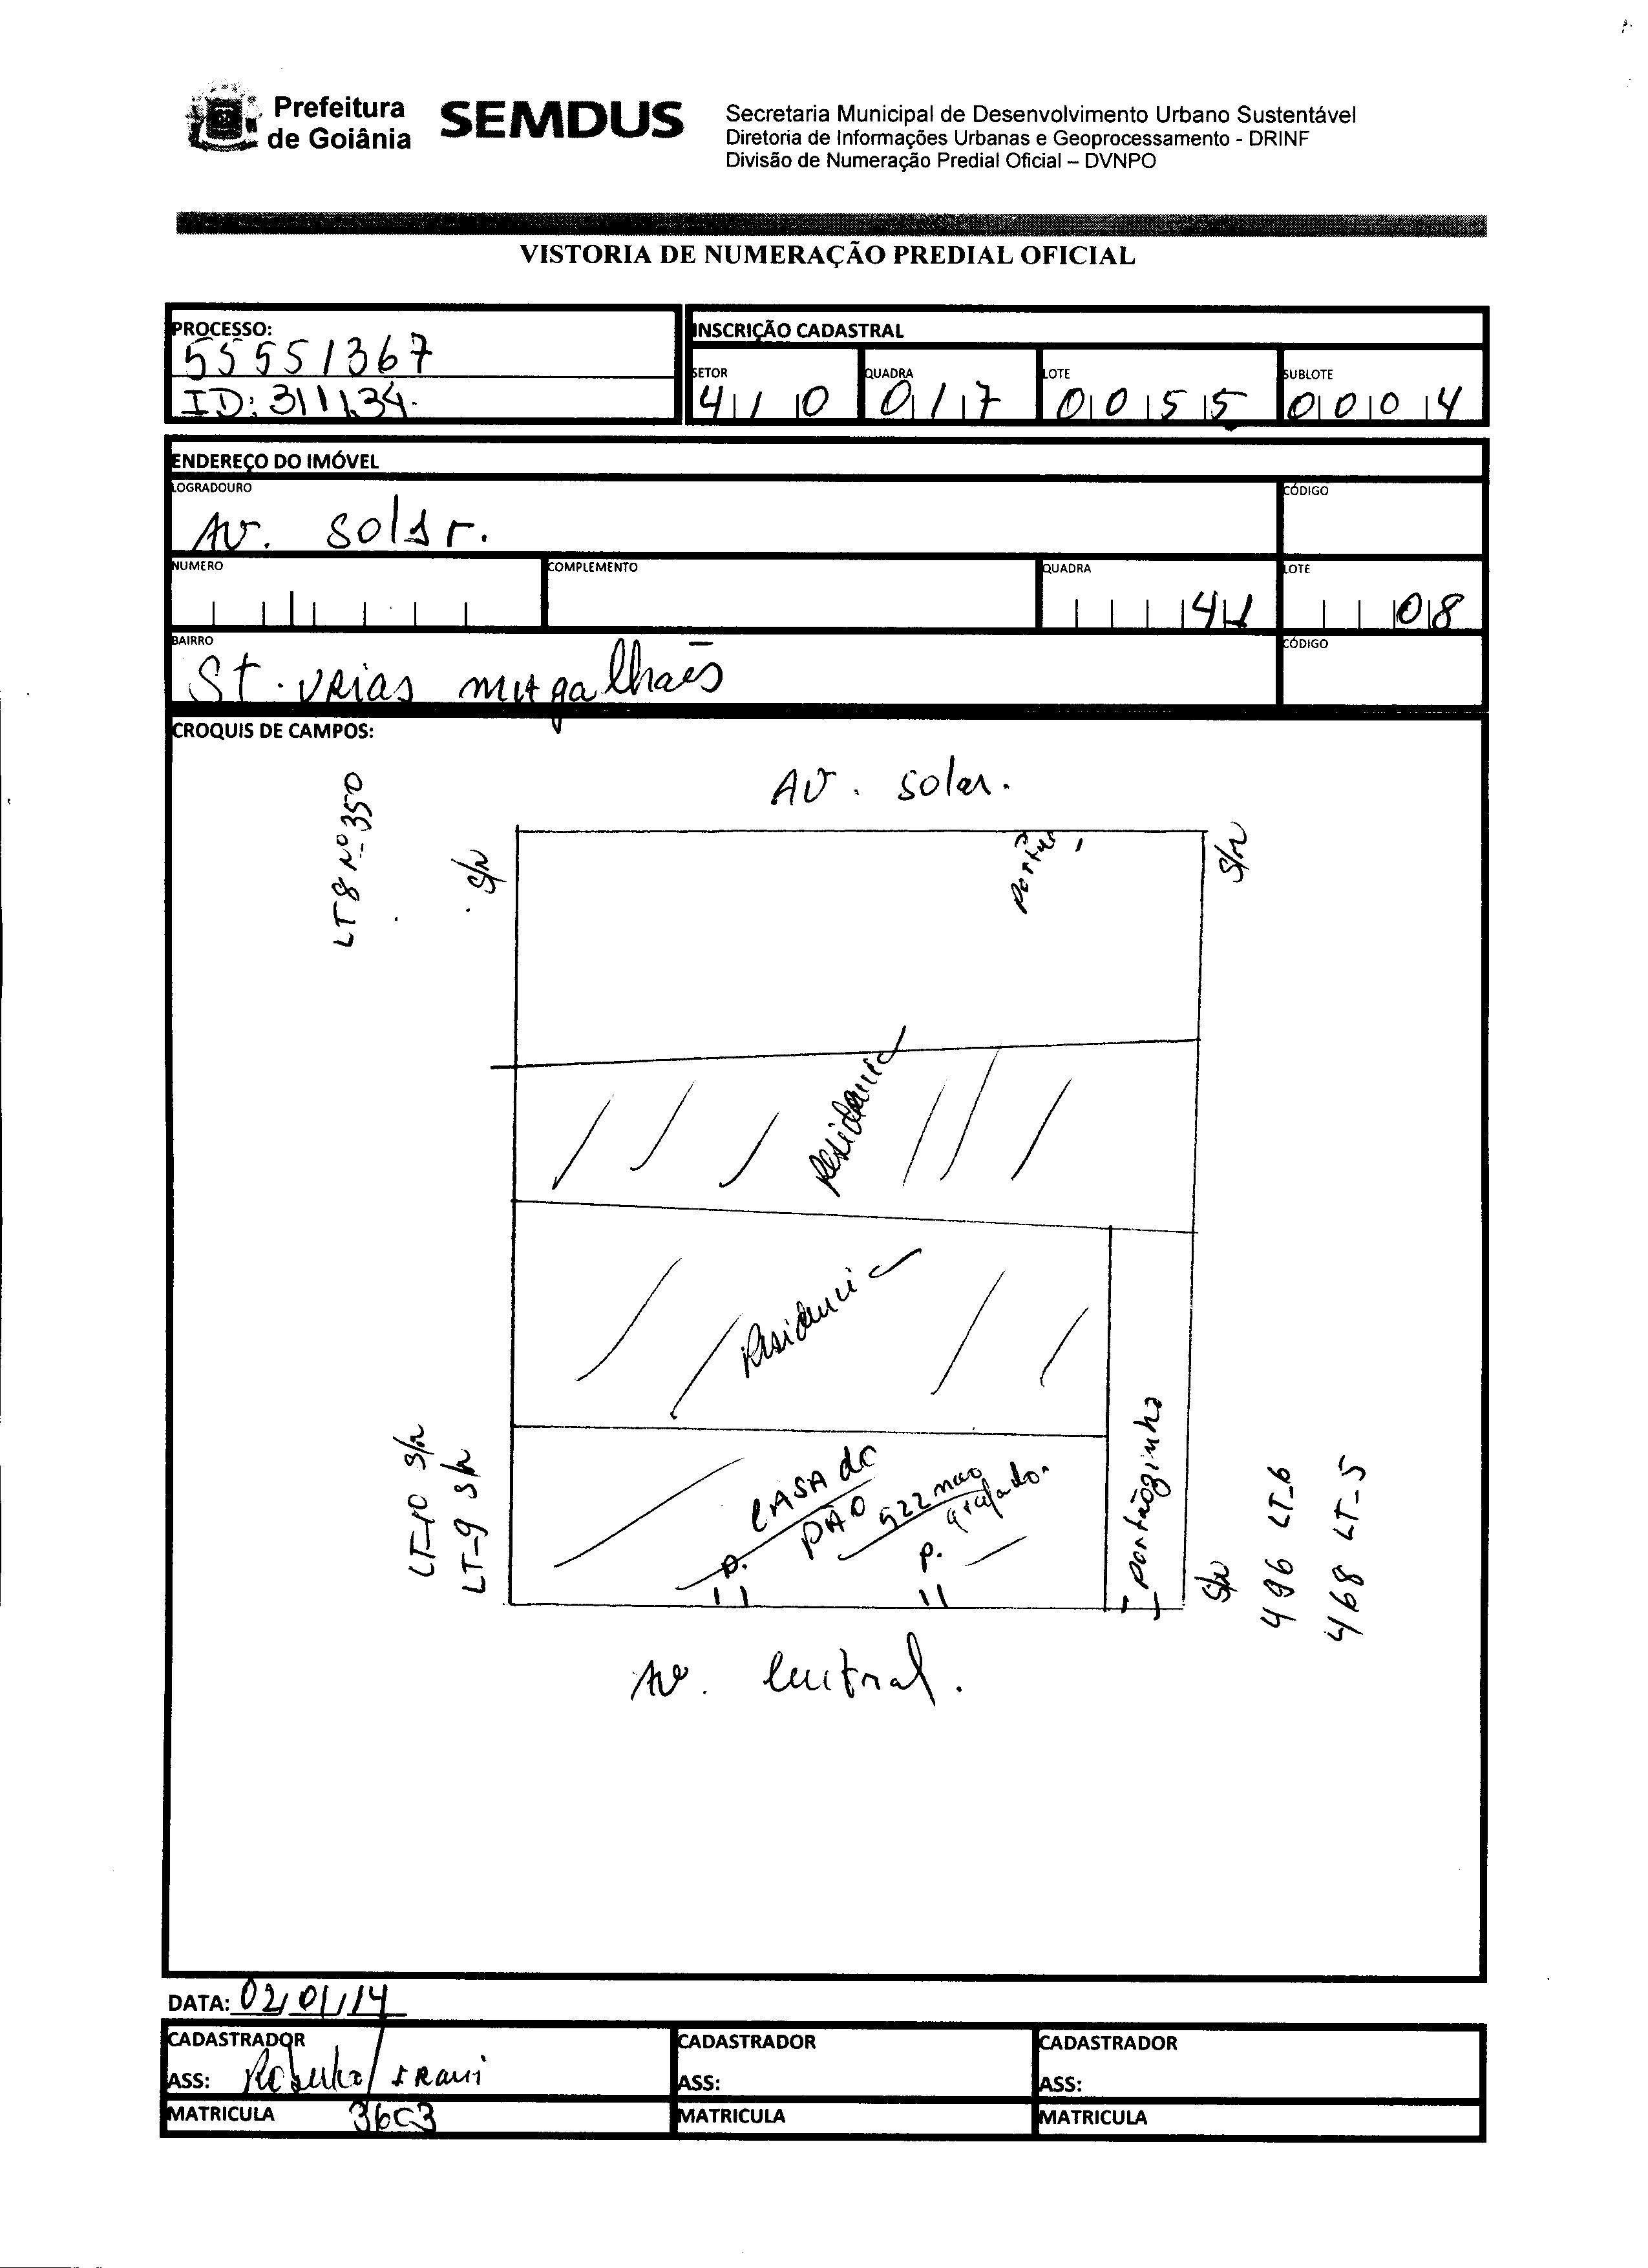 Prefeitura
de Goiânia
SEMDUS
Secretaria Municipal de Desenvolvimento Urbano Sustentável
Diretoria de Informações Urbanas e Geoprocessamento - DRINF
Divisão de Numeração Predial Oficial – DVNPO
VISTORIA DE NUMERAÇÃO PREDIAL OFICIAL
PROCESSO:
55551367
ID: 311134.
INSCRIÇÃO CADASTRAL
SETOR
410
QUADRA
017
LOTE
0055
SUBLOTE
0004
ENDEREÇO DO IMÓVEL
LOGRADOURO
AV. solar.
CÓDIGO
NUMERO
COMPLEMENTO
QUADRA
41
LOTE
08
BAIRRO
St. URIAS magalhães
CÓDIGO
CROQUIS DE CAMPOS:
AV. solar.
LT 8 Nº 350
S/N
portão
S/N
Residencia
Residencia
LT-10 S/N
LT-9 S/N
CASA do
PÃO
522 nao
grafado.
P.
P.
portãozinho
S/N
496 LT-6
468 LT-5
Av. Central.
DATA: 02/01/14
CADASTRADOR
ASS:
MATRICULA 3603
CADASTRADOR
ASS:
MATRICULA
CADASTRADOR
ASS:
MATRICULA